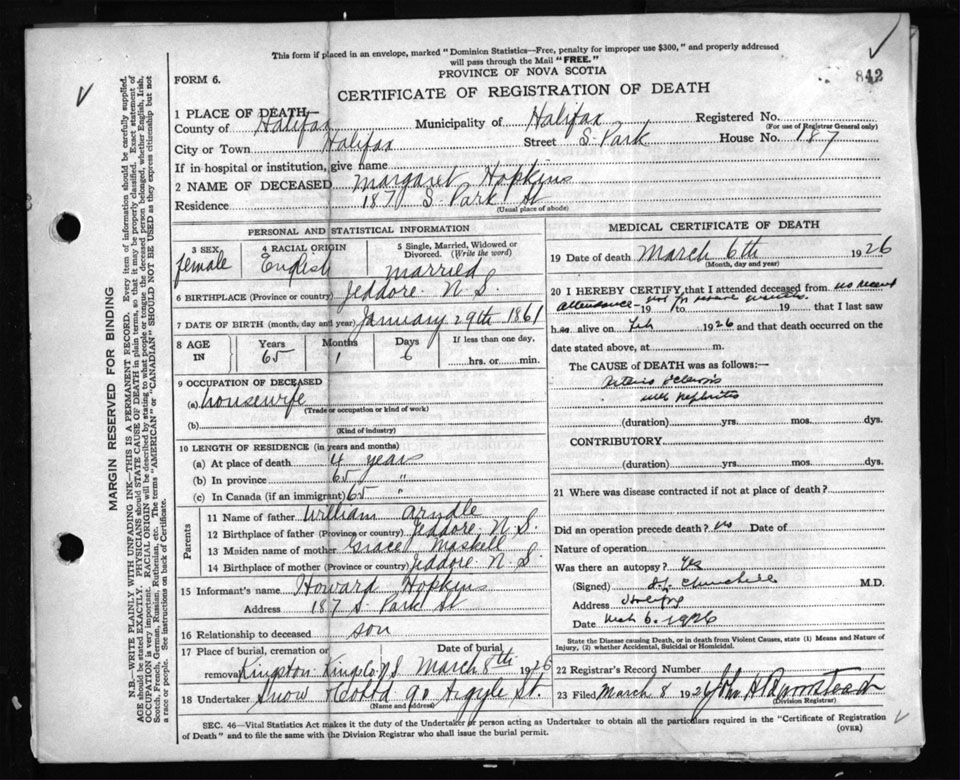 This form if placed in an envelope, marked "Dominion Statistics—Free, penalty for improper use $300," and properly addressed
will pass through the Mail "FREE."
PROVINCE OF NOVA SCOTIA
842
FORM 6.
CERTIFICATE OF REGISTRATION OF DEATH
1 PLACE OF DEATH
County of Halifax Municipality of Halifax Registered No.
(For use of Registrar General only)
City or Town Halifax Street S. Park House No. 187
If in hospital or institution, give name
2 NAME OF DECEASED Margaret Hopkins
Residence 187 S. Park St
(Usual place of abode)
PERSONAL AND STATISTICAL INFORMATION
3 SEX 4 RACIAL ORIGIN 5 Single, Married, Widowed or Divorced. (Write the word)
female English married
6 BIRTHPLACE (Province or country) Jeddore. N. S.
7 DATE OF BIRTH (month, day and year) January 29th 1861
8 AGE IN Years Months Days If less than one day,
65 1 6 hrs. or min.
9 OCCUPATION OF DECEASED
(a) housewife
(Trade or occupation or kind of work)
(b)
(Kind of industry)
10 LENGTH OF RESIDENCE (in years and months)
(a) At place of death 4 years
(b) In province 65 "
(c) In Canada (if an immigrant) 65 "
Parents
11 Name of father William Arndle
12 Birthplace of father (Province or country) Jeddore. N. S.
13 Maiden name of mother Grace Maskell
14 Birthplace of mother (Province or country) Jeddore N. S.
15 Informant's name Howard Hopkins
Address 187 S. Park St
16 Relationship to deceased son
17 Place of burial, cremation or Date of burial
removal Kingston Kings Co N S March 8th 1926
18 Undertaker Snow & Co Ltd 90 Argyle St.
(Name and address)
MEDICAL CERTIFICATE OF DEATH
19 Date of death March 6th 1926
(Month, day and year)
20 I HEREBY CERTIFY, that I attended deceased from no recent
attendance - not for several months. 19 to 19 that I last saw
h alive on Feb 1926 and that death occurred on the
date stated above, at m.
The CAUSE of DEATH was as follows:—
Arterio Sclerosis
with Nephritis
(duration) yrs. mos. dys.
CONTRIBUTORY
(duration) yrs. mos. dys.
21 Where was disease contracted if not at place of death?
Did an operation precede death? no Date of
Nature of operation
Was there an autopsy?
(Signed) Churchill M.D.
Address Halifax
Date Mch 6. 1926
State the Disease causing Death, or in death from Violent Causes, state (1) Means and Nature of
Injury, (2) whether Accidental, Suicidal or Homicidal.
22 Registrar's Record Number
23 Filed March 8 1926 John
(Division Registrar)
SEC. 46—Vital Statistics Act makes it the duty of the Undertaker or person acting as Undertaker to obtain all the particulars required in the "Certificate of Registration
of Death" and to file the same with the Division Registrar who shall issue the burial permit.
(OVER)
MARGIN RESERVED FOR BINDING
N.B.—WRITE PLAINLY WITH UNFADING INK—THIS IS A PERMANENT RECORD. Every item of information should be carefully supplied.
AGE should be stated EXACTLY. PHYSICIANS should STATE CAUSE OF DEATH in plain terms, so that it may be properly classified. Exact statement of
OCCUPATION is very important. RACIAL ORIGIN will be described by stating to what people or tongue the deceased person belonged, whether English, Irish,
Scotch, French, German, Russian, Ruthenian, etc. The terms "AMERICAN" or "CANADIAN" SHOULD NOT BE USED as they express citizenship but not
a race or people. See instructions on back of Certificate.